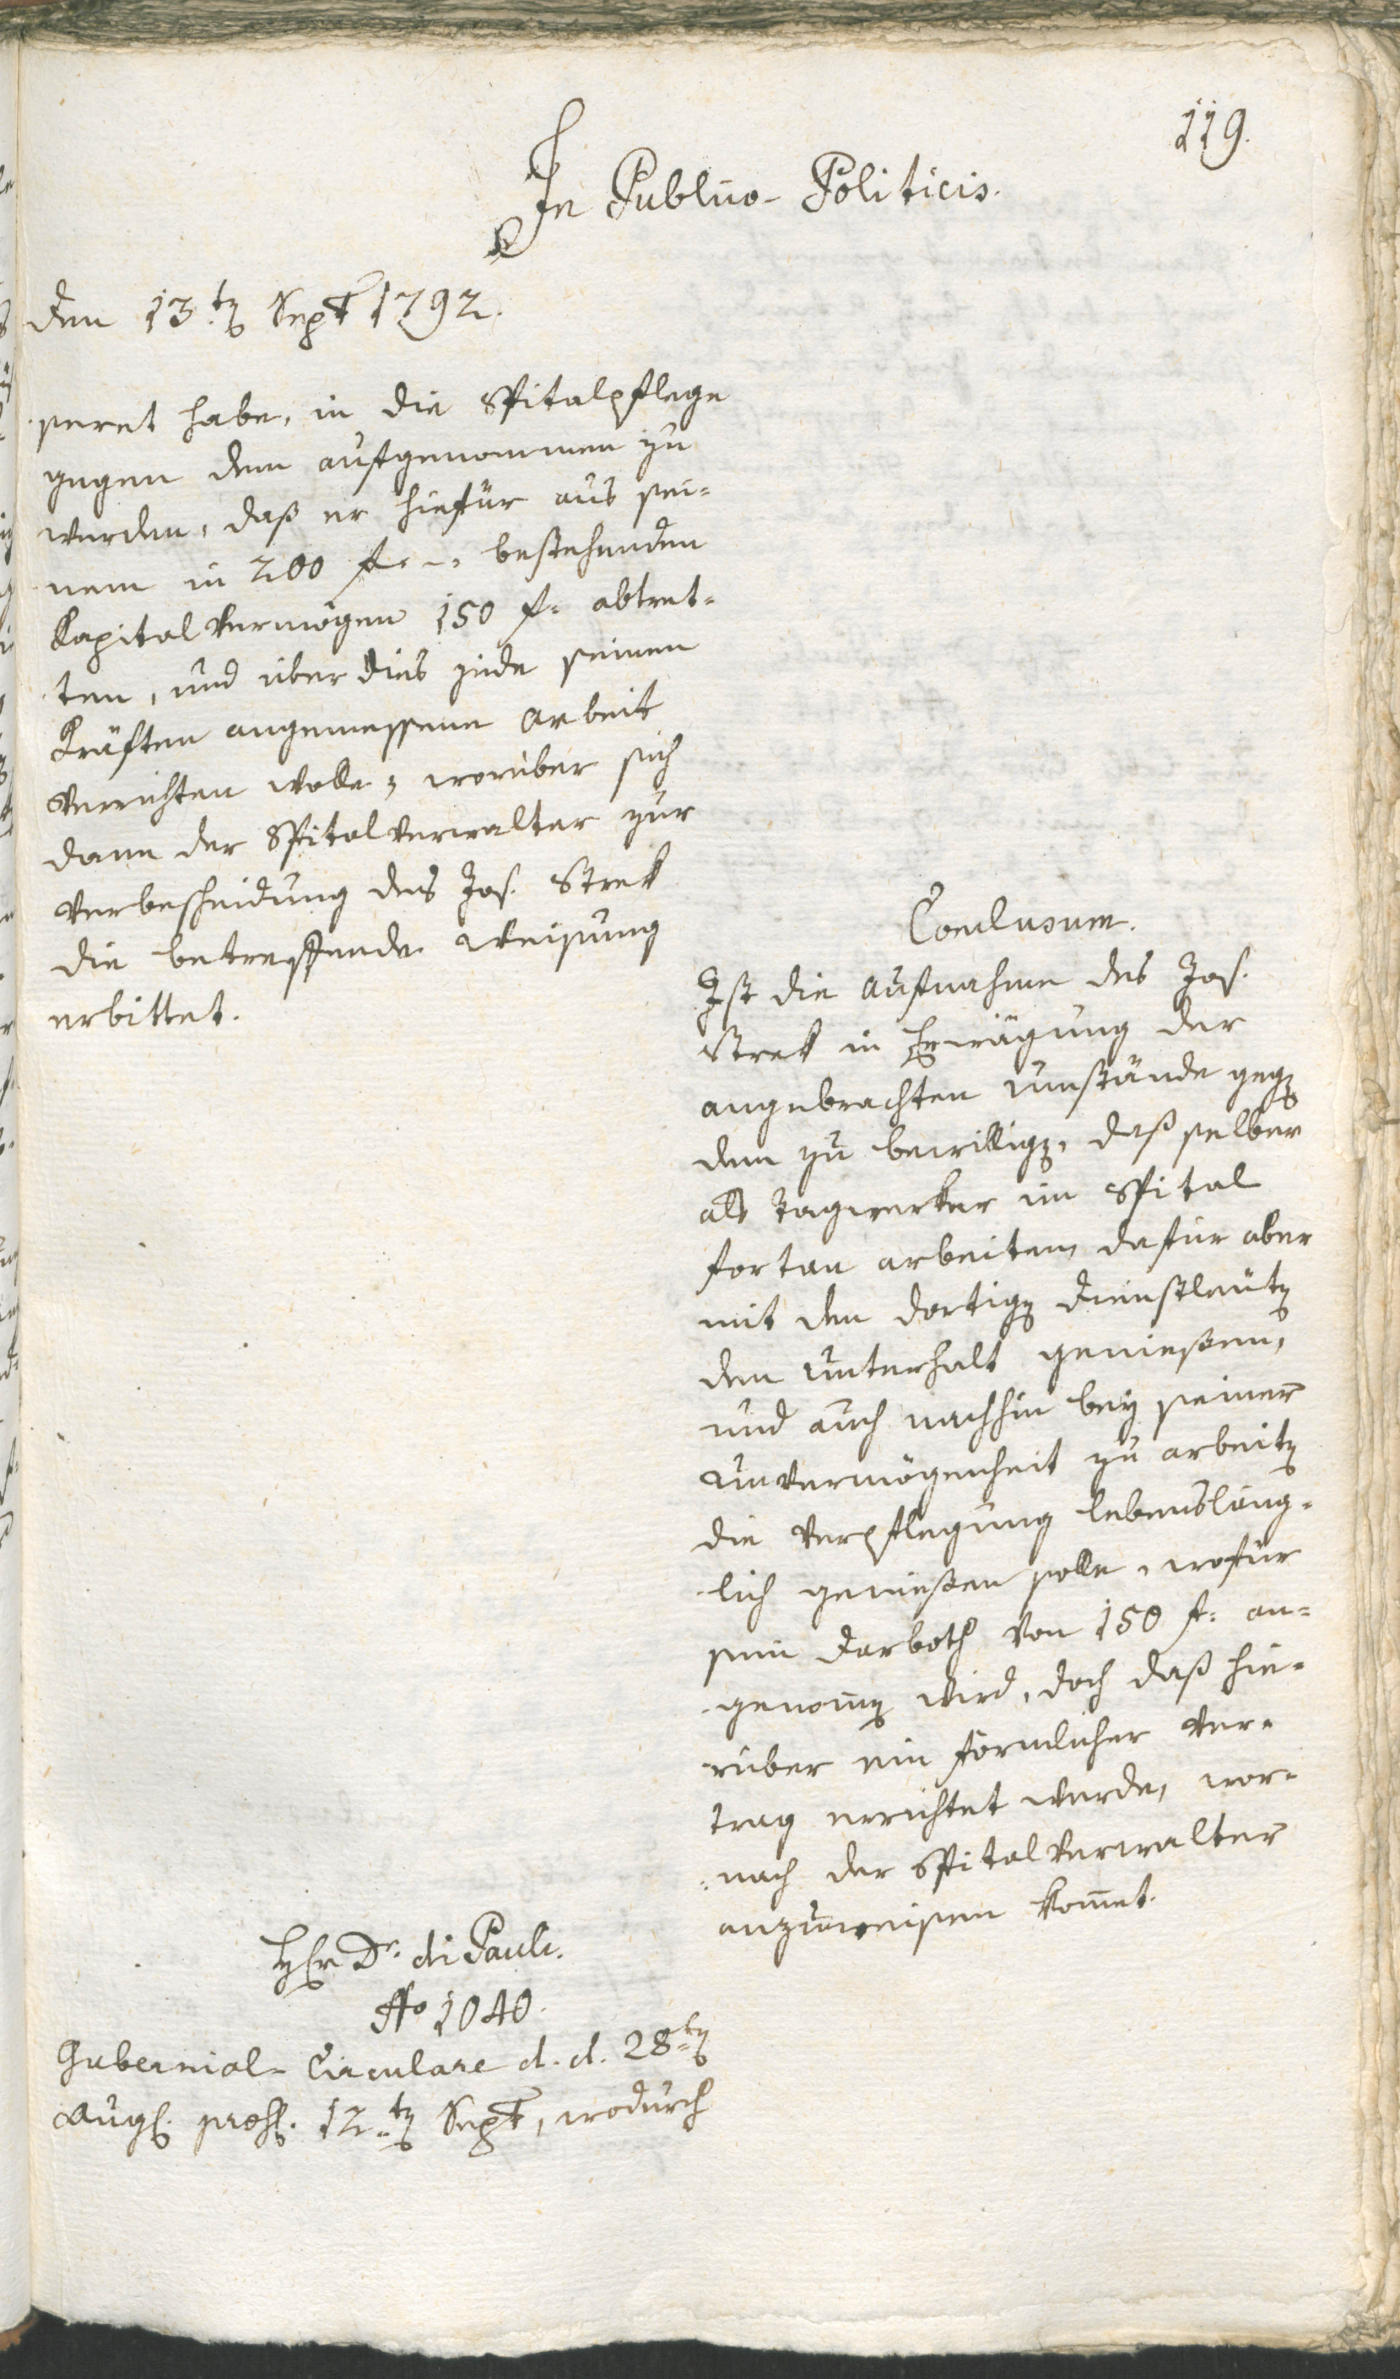 119.
In Publico-Politicis.
den 13.ten Sept 1792.
peret habe, in die Spitalpflege
gegen dem aufgenommen zu
werden, daß er hiefür aus sei=
nem in 200 f. bestehenden
Kapitalvermögen 150 f. abtret=
ten, und über dies jede seinen
Kräften angemessene Arbeit
verrichten wolle, worüber sich
dann der Spitalverwalter zur
Verbescheidung des Jos. Strek
die betreffende Weisung
erbittet.
Conclusum.
Ist die Aufnahme des Jos.
Strek in Erwägung der
angebrachten Umstände gegen
dem zu bewilligen, daß selber
als Tagwerker im Spital
fortan arbeiten, dafür aber
mit den dortigen Dienstleuten
den Unterhalt genießen,
und auch nachhin bey seiner
Unvermögenheit zu arbeiten
die Verpflegung lebensläng=
lich genießen solle, wofür
sein Darboth von 150 f. an=
genommen wird, doch daß hie=
rüber ein förmlicher Ver=
trag errichtet werde, wor=
nach der Spitalverwalter
anzuweisen kommet.
Herr Dr. di Pauli.
No 1040.
Gubernial-Circulare d. d. 28.ten
Aug. praes. 12.ten Sept, wodurch